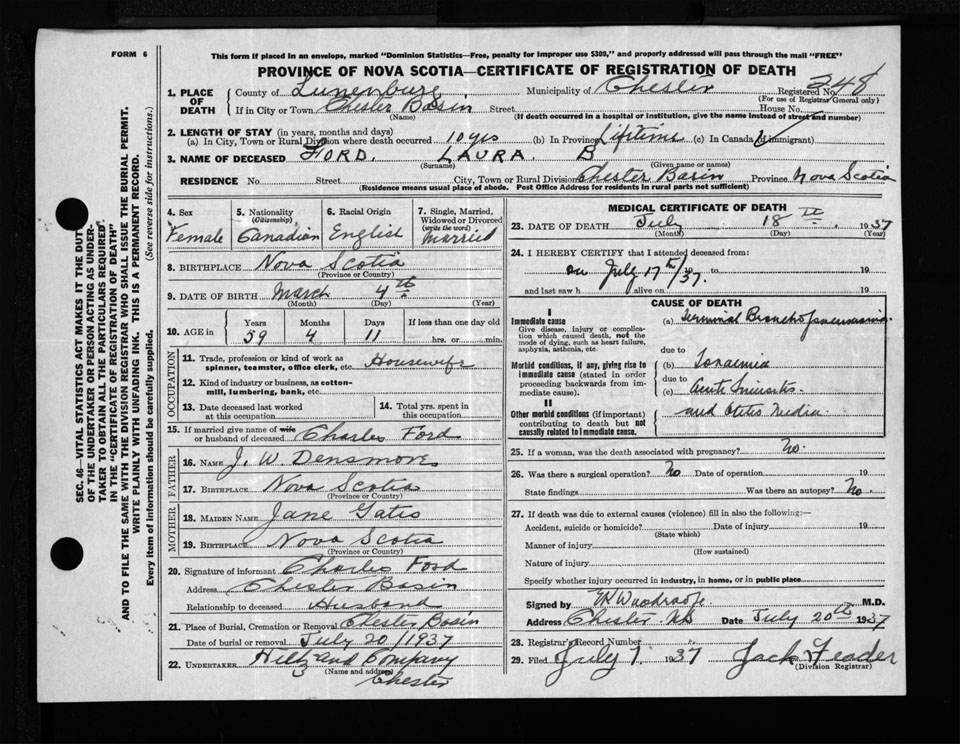 FORM 6
This form if placed in an envelope, marked "Dominion Statistics—Free, penalty for improper use $300," and properly addressed will pass through the mail "FREE"
PROVINCE OF NOVA SCOTIA—CERTIFICATE OF REGISTRATION OF DEATH
1. PLACE OF DEATH County of Lunenburg Municipality of Chester Registered No. 348
(For use of Registrar General only)
If in City or Town Chester Basin Street House No.
(Name) (If death occurred in a hospital or institution, give the name instead of street and number)
2. LENGTH OF STAY (in years, months and days)
(a) In City, Town or Rural Division where death occurred 10 yrs (b) In Province Lifetime (c) In Canada (if immigrant)
3. NAME OF DECEASED FORD. LAURA. B
(Surname) (Given name or names)
RESIDENCE No. Street City, Town or Rural Division Chester Basin Province Nova Scotia
(Residence means usual place of abode. Post Office Address for residents in rural parts not sufficient)
4. Sex Female
5. Nationality (Citizenship) Canadian
6. Racial Origin English
7. Single, Married, Widowed or Divorced (write the word) Married
8. BIRTHPLACE Nova Scotia
(Province or Country)
9. DATE OF BIRTH March 4th
(Month) (Day) (Year)
10. AGE in Years Months Days If less than one day old
59 4 11 hrs. or min.
OCCUPATION
11. Trade, profession or kind of work as spinner, teamster, office clerk, etc. Housewife
12. Kind of industry or business, as cotton-mill, lumbering, bank, etc.
13. Date deceased last worked at this occupation
14. Total yrs. spent in this occupation
15. If married give name of wife or husband of deceased Charles Ford
FATHER
16. NAME J. W. Densmore
17. BIRTHPLACE Nova Scotia
(Province or Country)
MOTHER
18. MAIDEN NAME Jane Gates
19. BIRTHPLACE Nova Scotia
(Province or Country)
20. Signature of informant Charles Ford
Address Chester Basin
Relationship to deceased Husband
21. Place of Burial, Cremation or Removal Chester Basin
Date of burial or removal July 20/1937
22. UNDERTAKER Hiltz and Company
(Name and address)
Chester
MEDICAL CERTIFICATE OF DEATH
23. DATE OF DEATH July 18th 1937
(Month) (Day) (Year)
24. I HEREBY CERTIFY that I attended deceased from:
on July 17th/37. 19 to 19
and last saw h alive on 19
CAUSE OF DEATH
I
Immediate cause
Give disease, injury or complication which caused death, not the mode of dying, such as heart failure, asphyxia, asthenia, etc.
(a) Terminal Bronchopneumonia
due to
Morbid conditions, if any, giving rise to immediate cause (stated in order proceeding backwards from immediate cause)
(b) Toxaemia
due to
(c) Acute Sinusitis
II
Other morbid conditions (if important) contributing to death but not causally related to immediate cause.
and Otitis Media.
25. If a woman, was the death associated with pregnancy? No.
26. Was there a surgical operation? No Date of operation 19
State findings Was there an autopsy? No.
27. If death was due to external causes (violence) fill in also the following:—
Accident, suicide or homicide? Date of injury 19
(State which)
Manner of injury
(How sustained)
Nature of injury
Specify whether injury occurred in industry, in home, or in public place
Signed by M.D.
Address Chester NS Date July 20th 1937
28. Registrar's Record Number
29. Filed July 1937 Jack
(Division Registrar)
SEC. 46—VITAL STATISTICS ACT MAKES IT THE DUTY
OF THE UNDERTAKER OR PERSON ACTING AS UNDER-
TAKER TO OBTAIN ALL THE PARTICULARS REQUIRED
IN THE "CERTIFICATE OF REGISTRATION OF DEATH"
AND TO FILE THE SAME WITH THE DIVISION REGISTRAR WHO SHALL ISSUE THE BURIAL PERMIT.
WRITE PLAINLY WITH UNFADING INK. THIS IS A PERMANENT RECORD.
Every item of information should be carefully supplied. (See reverse side for instructions.)